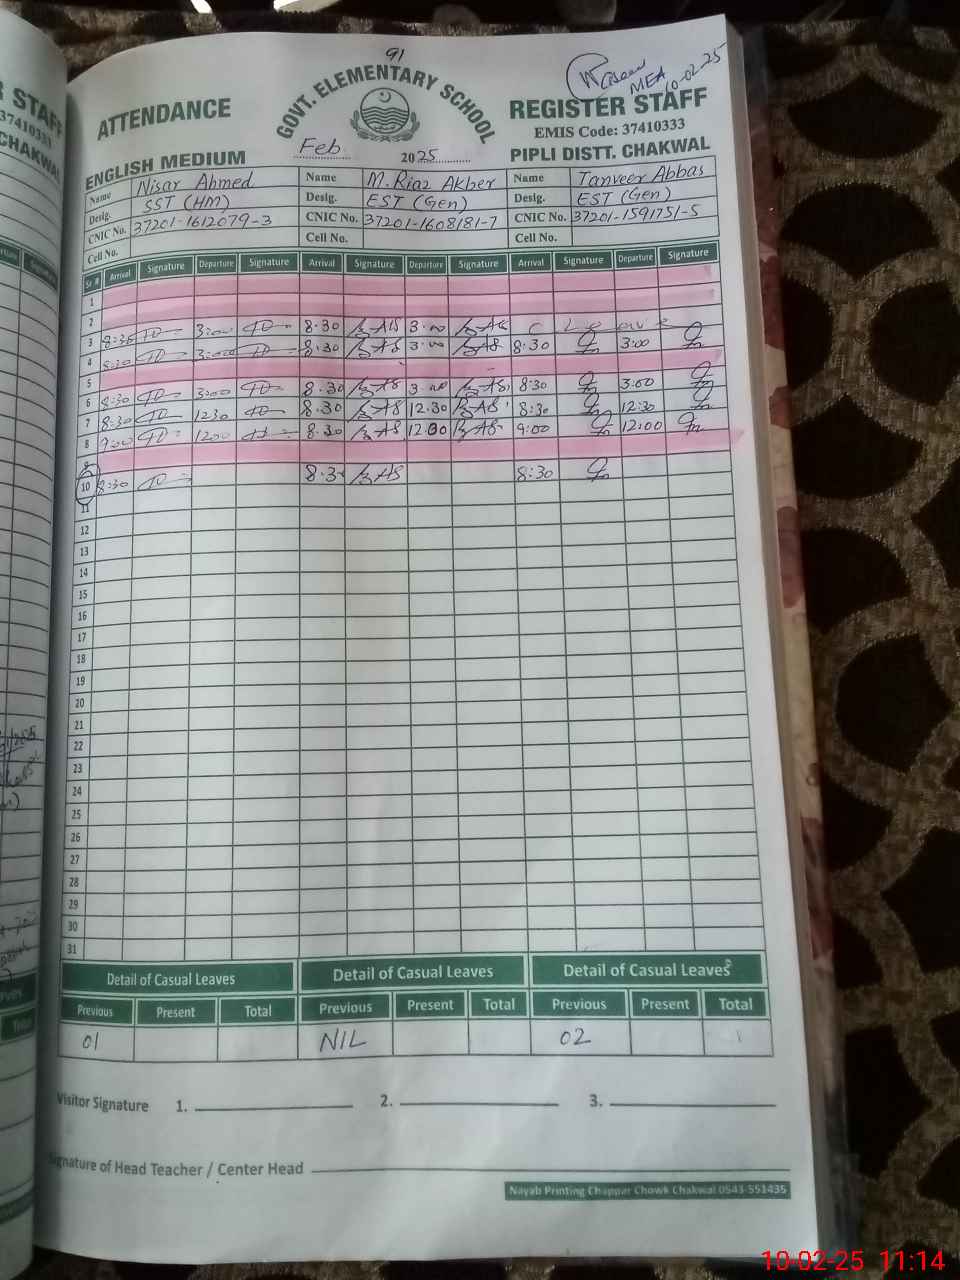 91
Waseem
MEA
10-02-25
ATTENDANCE
GOVT. ELEMENTARY SCHOOL
REGISTER STAFF
EMIS Code: 37410333
ENGLISH MEDIUM
Feb 2025
PIPLI DISTT. CHAKWAL
Name Nisar Ahmed Name M.Riaz Akber Name Tanveer Abbas
Desig. SST (HM) Desig. EST (Gen) Desig. EST (Gen)
CNIC No. 37201-1612079-3 CNIC No. 37201-1608181-7 CNIC No. 37201-1591751-5
Cell No. Cell No. Cell No.
Sr # Arrival Signature Departure Signature Arrival Signature Departure Signature Arrival Signature Departure Signature
1
2
3 8:30 3:00 8:30 3:00 C Leave
4 8:30 3:00 8:30 3:00 8:30 3:00
5
6 8:30 3:00 8:30 3:00 8:30 3:00
7 8:30 12:30 8:30 12:30 8:30 12:30
8 9:00 12:00 8:30 12:00 9:00 12:00
9
10 8:30 8:30 8:30
11
12
13
14
15
16
17
18
19
20
21
22
23
24
25
26
27
28
29
30
31
Detail of Casual Leaves Detail of Casual Leaves Detail of Casual Leaves
Previous Present Total Previous Present Total Previous Present Total
01 NIL 02
Visitor Signature 1. 2. 3.
Signature of Head Teacher / Center Head
Nayab Printing Chappar Chowk Chakwal 0543-551435
10-02-25 11:14